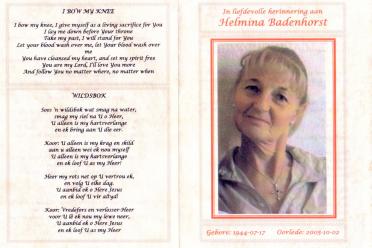 I BOW MY KNEE
I bow my knee, I give myself as a living sacrifice for You
I lay me down before Your throne
Take my past, I will stand for You
Let your blood wash over me, let Your blood wash over
me
You have cleansed my heart, and set my spirit free
You are my Lord, I'll love You more
And follow You no matter where, no matter when
WILDSBOK
Soos 'n wildsbok wat smag na water,
smag my siel na U o Heer,
U alleen is my hartsverlange
en ek bring aan U die eer.
Koor: U alleen is my krag en skild
aan u alleen wei ek nou myself
U alleen is my hartsverlange
en ek loof U as my Heer!
Heer my rots net op U vertrou ek,
en volg U elke dag.
U aanbid ek o Here Jesus
en ek loof U vir altyd!
Koor: Vredefors en verlosser Heer
voor U lê ek nou my lewe neer,
U aanbid ek o Here Jesus
en ek loof U as my Heer!
In liefdevolle herinnering aan
Helmina Badenhorst
Gebore: 1944-07-17 Oorlede: 2005-10-02